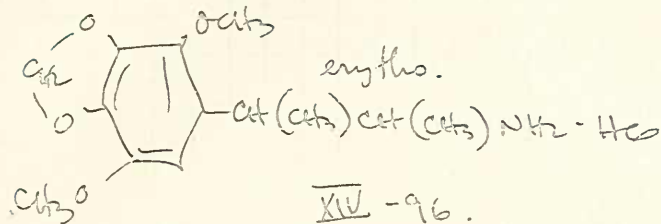 O OCH3
CH2 erythro.
O CH(CH3)CH(CH3)NH2 - HCl
CH3O XIV - 96.